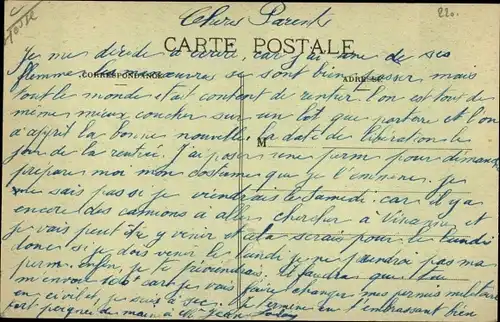 220.
Chers Parents
CARTE POSTALE
CORRESPONDANCE
ADRESSE
M
Je me décide à écrire, car j'ai une de ses
flemme. Les manœuvres se sont bien passer, mais
tout le monde était content de rentrer. l'on est tout de
même mieux coucher sur un lit que par terre et l'on
a appris la bonne nouvelle, la date de libération le
jour de la rentrée. J'ai poser une perm pour dimanche
prépare moi mon costume que je l'emmène. je
ne sais pas si je viendrais le Samedi. car il y a
encore des camions a aller chercher a Vincennes et
je vais peut être y venir et la serais pour le lundi
donc si je dois venir le lundi je ne prendrai pas ma
perm. Enfin, je te préviendrais. il faudra que tu
m'envoie car je vais faire changer mes permis militaire
en civil et je suis à sec. Je termine en t'embrassant bien
fort. poignée de main à Jean